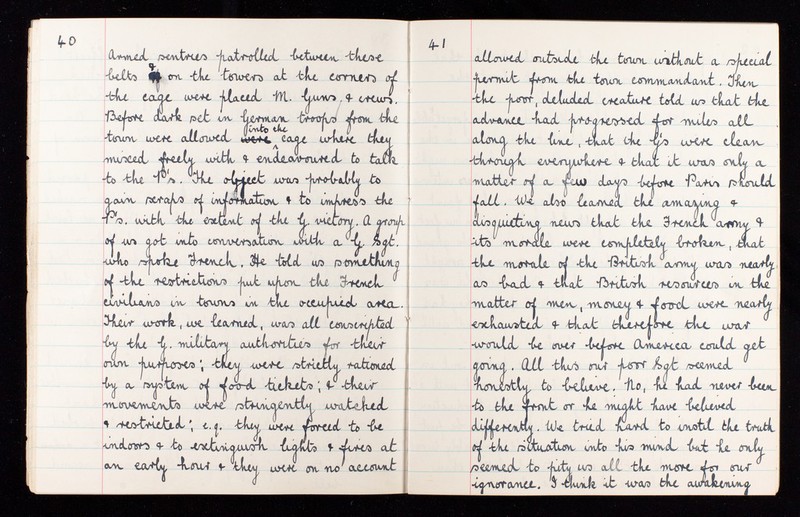 40
Armed sentries patrolled between these
belts & on the towers at the corners of
the cage were placed M. Guns, & crews.
Before dark set in German troops from the
town were allowed were into the cage where they
mixed freely with & endeavoured to talk
to the P's. The object was probably to
gain scraps of information & to impress the
P's. with the extent of the G victory. A group
of us got into conversation with a G Sgt.
who spoke French. He told us something
of the restrictions put upon the French
civilians in towns in the occupied area.
Their work, we learned, was all conscripted
by the G. military authorities for their
own purposes; they were strictly rationed
by a system of food tickets; & their
movements were stringently watched
& restricted; e.g. they were forced to be
indoors & to extinguish lights & fires at
an early hour & they were on no account
41
allowed outside the town without a special
permit from the town commandant. Then
the poor, deluded creature told us that the
advance had progressed for miles all
along the line, that the G's were clean
through everywhere & that it was only a
matter of a few days before Paris should
fall. We also learned the amazing &
disquieting news that the French army &
its morale were completely broken, that
the morale of the British army was nearly
as bad & that British resources in the
matter of men, money & food were nearly
exhausted & that therefore the war
would be over before America could get
going. All this our poor Sgt seemed
honestly to believe. No, he had never been
to the front or he might have believed
differently. We tried hard to instil the truth
of the situation into his mind but he only
seemed to pity us all the more for our
ignorance. I think it was the awakening